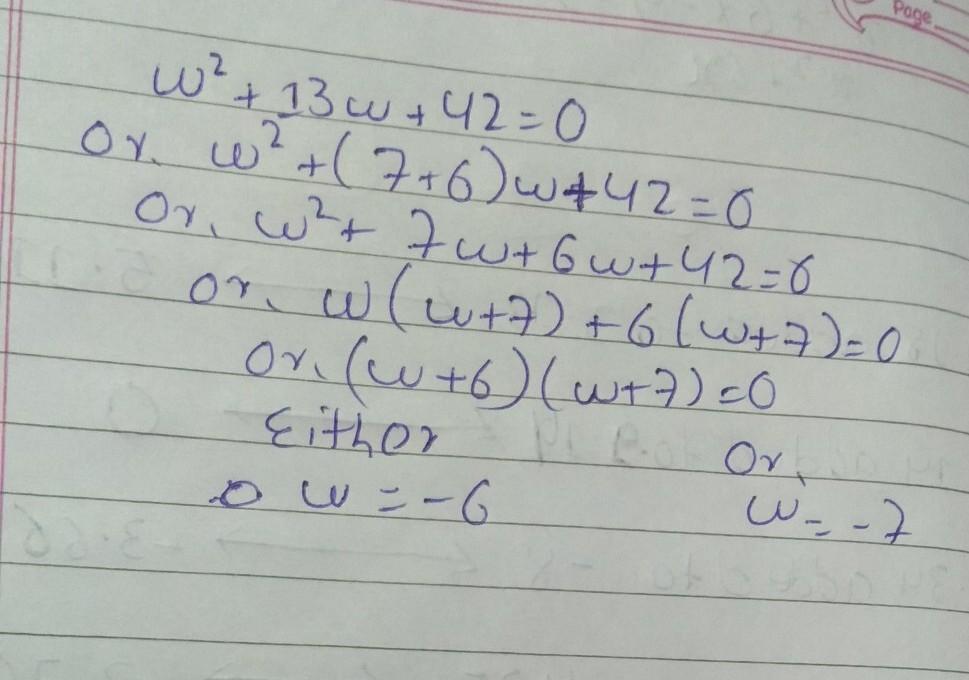 Page
w² + 13w + 42 = 0
Or, w² + (7+6)w + 42 = 0
Or, w² + 7w + 6w + 42 = 0
or, w(w+7) + 6(w+7) = 0
Or, (w+6)(w+7) = 0
Eithor Or,
w = -6 w = -7